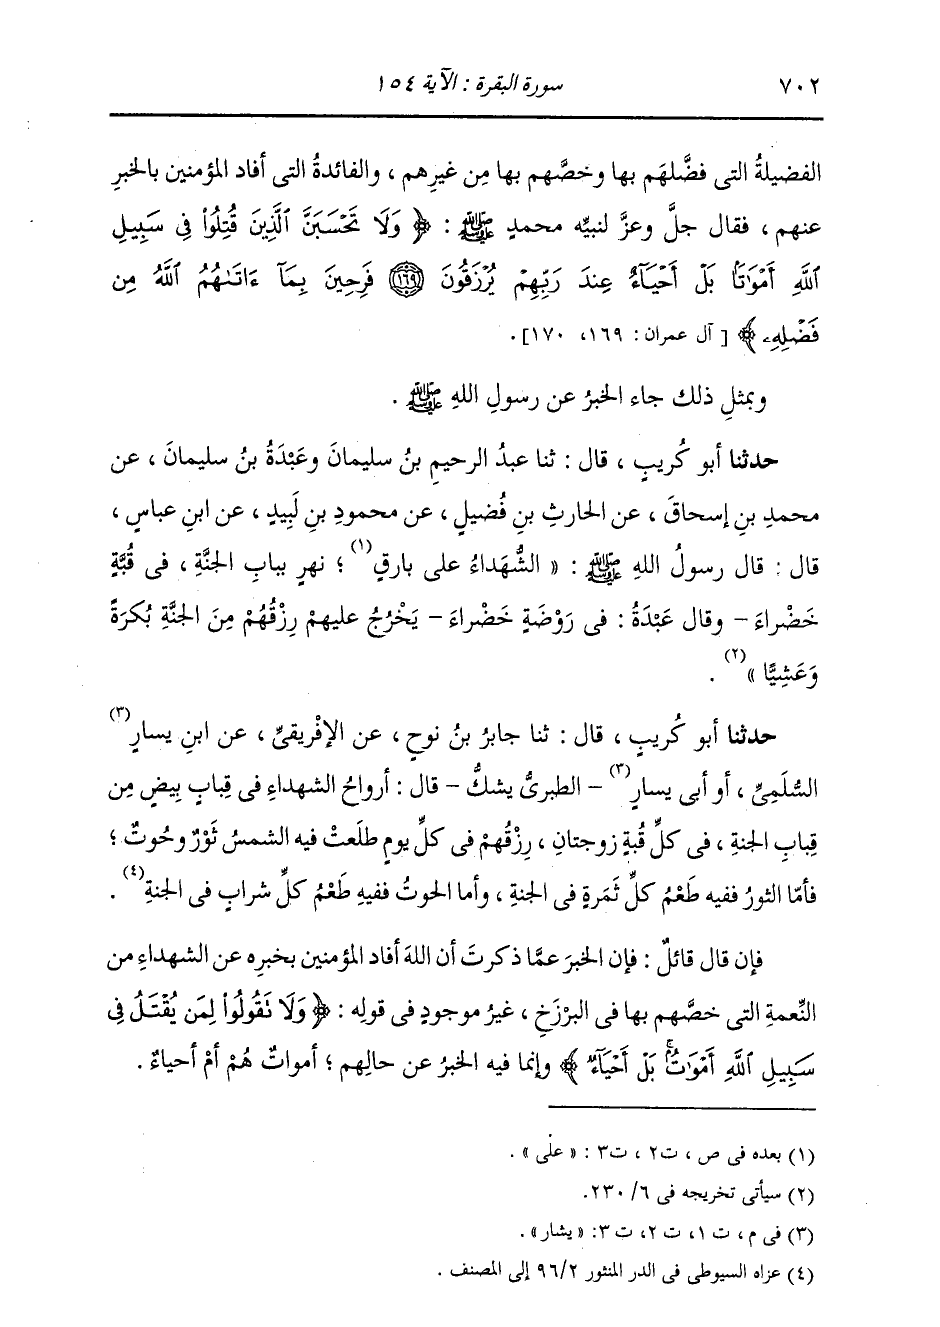 ٧٠٢ سورة البقرة : الآية ١٥٤
الفضيلةُ التى فضَّلهَم بها وخصَّهم بها مِن غيرِهم ، والفائدةُ التى أفاد المؤمنين بالخبرِ
عنهم ، فقال جلَّ وعزَّ لنبيِّه محمدٍ ﷺ : ﴿ وَلَا تَحْسَبَنَّ ٱلَّذِينَ قُتِلُوا۟ فِى سَبِيلِ
ٱللَّهِ أَمْوَٰتًۢا بَلْ أَحْيَآءٌ عِندَ رَبِّهِمْ يُرْزَقُونَ ﴿١٦٩﴾ فَرِحِينَ بِمَآ ءَاتَىٰهُمُ ٱللَّهُ مِن
فَضْلِهِۦ ﴾ [ آل عمران : ١٦٩، ١٧٠] .
وبمثلِ ذلك جاء الخبرُ عن رسولِ اللهِ ﷺ .
حدثنا أبو كُريبٍ ، قال : ثنا عبدُ الرحيمِ بنُ سليمانَ وعَبْدَةُ بنُ سليمانَ ، عن
محمدِ بنِ إسحاقَ ، عن الحارثِ بنِ فُضيلٍ ، عن محمودِ بنِ لَبِيدٍ ، عن ابنِ عباسٍ ،
قال : قال رسولُ اللهِ ﷺ : « الشُّهَداءُ على بارقٍ (١) ؛ نهرٍ ببابِ الجنَّةِ ، فى قُبَّةٍ
خَضْراءَ – وقال عَبْدَةُ : فى رَوْضَةٍ خَضْراءَ – يَخْرُجُ عليهمْ رِزْقُهُمْ مِنَ الجنَّةِ بُكرَةً
وَعَشِيًّا » (٢) .
حدثنا أبو كُريبٍ ، قال : ثنا جابرُ بنُ نوحٍ ، عن الإفْريقىِّ ، عن ابنِ يسارٍ (٣)
السُّلَمِىِّ ، أو أبى يسارٍ (٣) – الطبرىُّ يشكُّ – قال : أرواحُ الشهداءِ فى قِبابٍ بِيضٍ مِن
قِبابِ الجنةِ ، فى كلِّ قُبةٍ زوجتانِ ، رِزْقُهمْ فى كلِّ يومٍ طلَعتْ فيه الشمسُ ثَوْرٌ وحُوتٌ ؛
فأمّا الثورُ ففيه طَعْمُ كلِّ ثَمَرةٍ فى الجنةِ ، وأما الحوتُ ففيهِ طَعْمُ كلِّ شرابٍ فى الجنةِ (٤) .
فإن قال قائلٌ : فإن الخبرَ عمَّا ذكرتَ أن اللهَ أفاد المؤمنين بخبرِه عن الشهداءِ من
النِّعمةِ التى خصَّهم بها فى البرْزَخِ ، غيرُ موجودٍ فى قولِه : ﴿ وَلَا تَقُولُوا۟ لِمَن يُقْتَلُ فِى
سَبِيلِ ٱللَّهِ أَمْوَٰتٌۢ بَلْ أَحْيَآءٌ ﴾ وإنما فيه الخبرُ عن حالِهم ؛ أمواتٌ هُمْ أمْ أحياءٌ .
(١) بعده فى ص ، ت٢ ، ت٣ : « على » .
(٢) سيأتى تخريجه فى ٦/ ٢٣٠.
(٣) فى م ، ت ١، ت ٢، ت ٣: « بشار» .
(٤) عزاه السيوطى فى الدر المنثور ٩٦/٢ إلى المصنف .